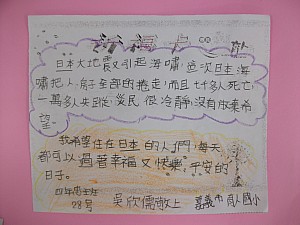 祈福卡
日本大地震引起海嘯這次日本海
嘯把人、房子全部的捲走,而且七千多人死亡,
一萬多人失蹤,災民很冷靜,沒有放棄希
望。
我希望住在日本的人們,每天
都可以過著幸福又快樂,平安的
日子。
四年廉士班
28號
吳欣儒敬上
嘉義市 育人國小